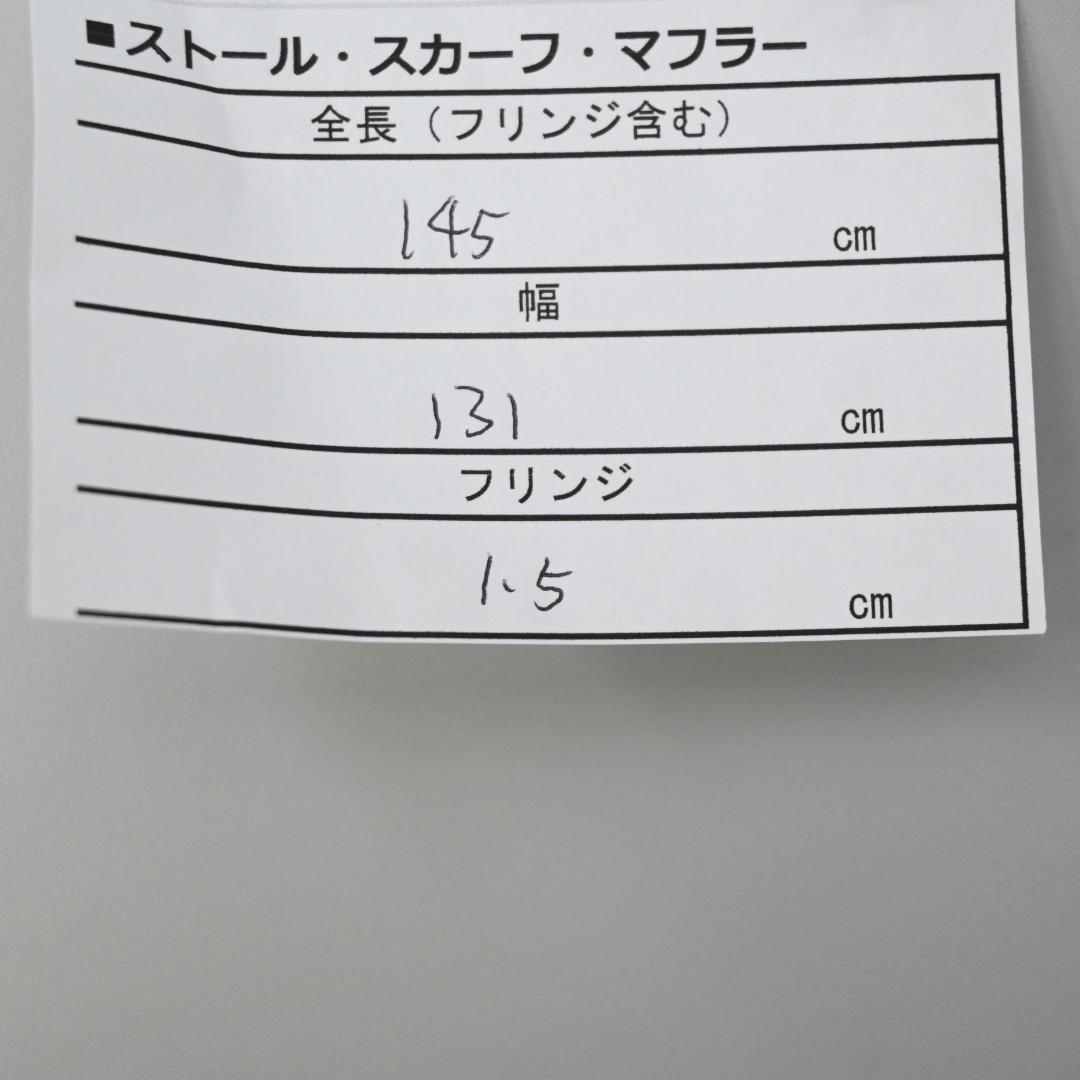 ■ストール・スカーフ・マフラー
全長（フリンジ含む）
145 cm
幅
131 cm
フリンジ
1.5 cm